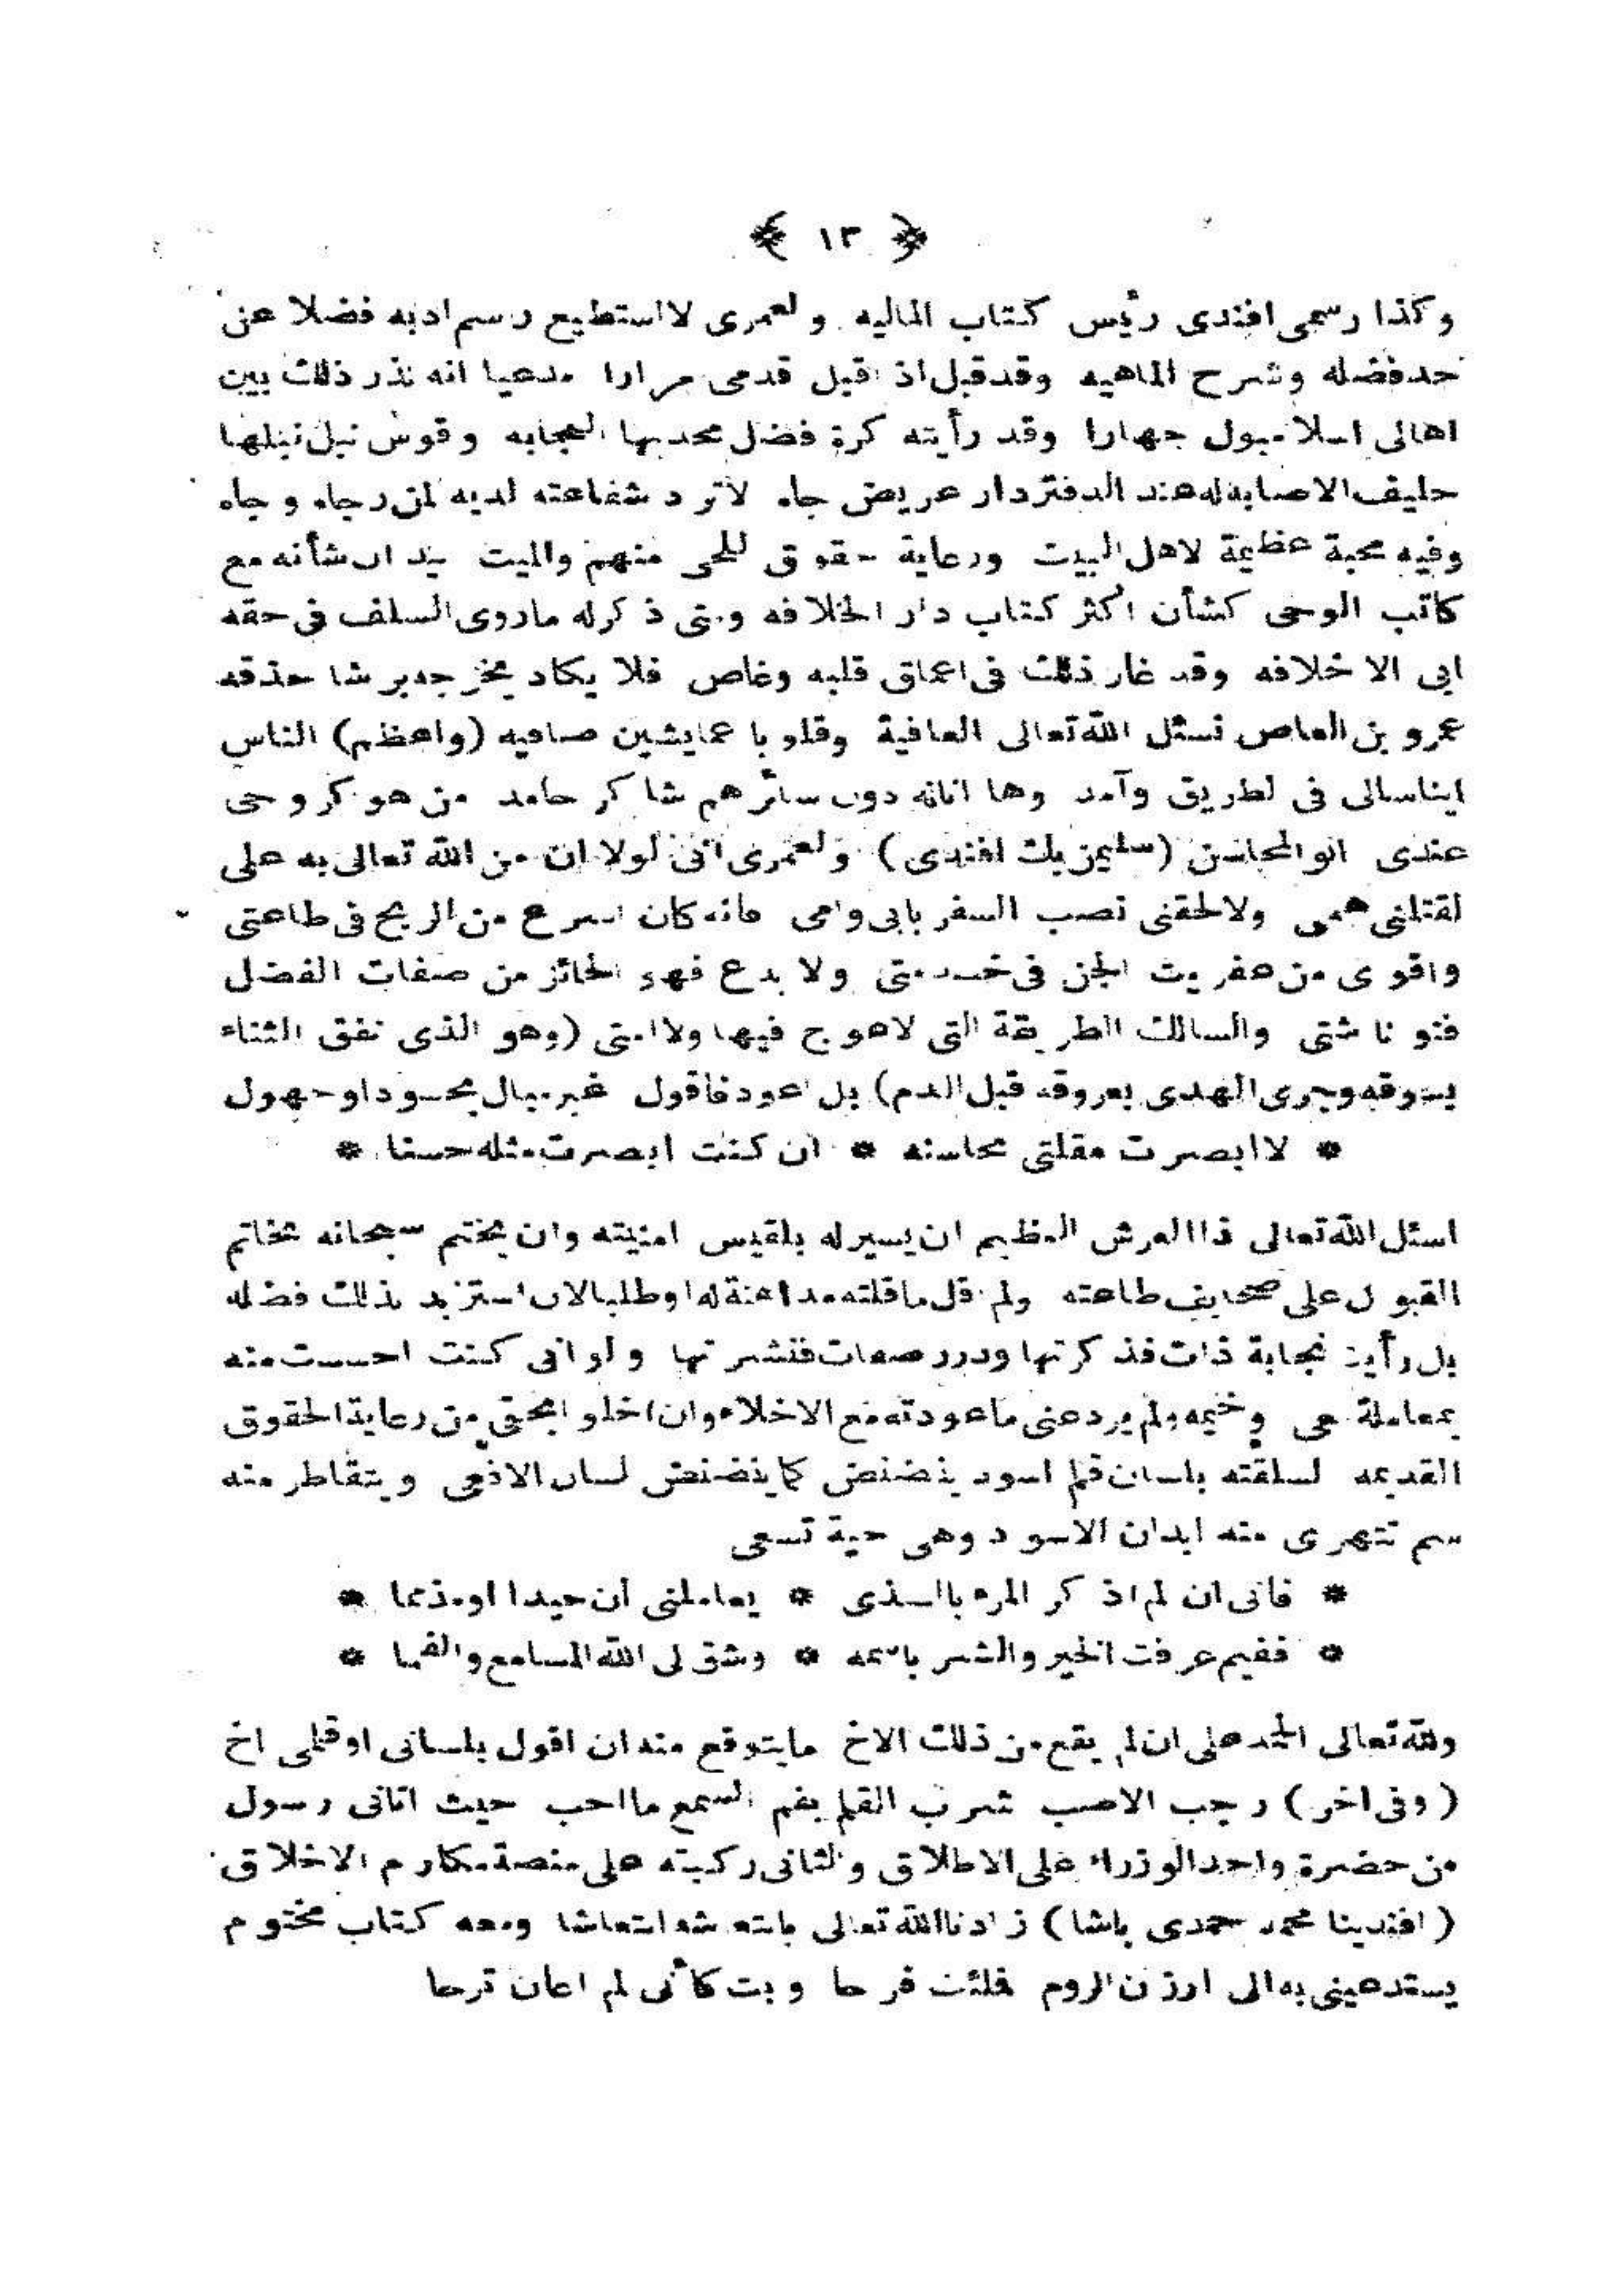 ﴿ ١٣ ﴾
وكذا رسمى افندى رئيس كتاب الماليه ولعمرى لااستطيع رسم ادبه فضلا عن
حدفضله وشرح الماهيه وقدقبل اذ اقبل قدمى مرارا مدعيا انه نذر ذلك بين
اهالى اسلامبول جهارا وقد رأيته كرة فضل محدبها النجابه وقوس نبل نبلها
حليف الاصابه له عند الدفتردار عريض جاه لاترد شفاعته لديه لمن رجاه وجاه
وفيه محبة عظيمة لاهل البيت ورعاية حقوق للحى منهم والميت بيد ان شأنه مع
كاتب الوحى كشأن اكثر كتاب دار الخلافه ومتى ذكرله ماروى السلف فى حقه
ابى الا خلافه وقد غار ذلك فى اعماق قلبه وغاص فلا يكاد يخرجه برشا حذقه
عمرو بن العاص نسئل الله تعالى العافية وقلوبا عمايشين صافيه (واعظم) الناس
ايناسالى فى طريق وآمد وها انانه دون سائرهم شاكر حامد من هو كروحى
عندى ابوالمحاسن (سليمن بك افندى) ولعمرى انى لولا ان من الله تعالى به على
لقتلنى همى ولالحقنى نصب السفر بابى وامى فانه كان اسرع من الريح فى طاعتى
واقوى من عفريت الجن فى خدمتى ولا بدع فهو الحائز من صفات الفضل
فنونا شتى والسالك الطريقة التى لاعوج فيها ولاامتى (وهو الذى نفق الثناء
بسوقه وجرى الهدى بعروقه قبل الدم) بل اعود فاقول غير مبال بحسود اوجهول
* لاابصرت مقلتى محاسنه * ان كنت ابصرت مثله حسنا *
اسئل الله تعالى ذا العرش العظيم ان يسيرله بلقيس امنيته وان يختم سبحانه بخاتم
القبول على صحايف طاعته ولم اقل ماقلته مداهنة له اوطلبالان استزيد بذلك فضله
بل رأيت نجابة ذات فذكرتها ودرر صفات فنشرتها ولو انى كنت احسست منه
بمعاملة حى وخيمه ولم يردعنى ماعودته مع الاخلاء وان اخلو ابحق من رعاية الحقوق
القديمه لسلقته بلسان قلم اسود ينضنض كما ينضنض لسان الافعى ويتقاطر منه
سم تتهرى منه ابدان الاسود وهى حية تسعى
* فانى ان لم اذكر المرء بالذى * يعاملنى ان حميدا اومذمما *
* ففيم عرفت الخير والشر باسمه * وشق لى الله المسامع والفما *
ولله تعالى الحمد على ان لم يقع من ذلك الاخ مايتوقع منه ان اقول بلسانى اوقلمى اخ
(وفى اخر) رجب الاصب شرب القلم بفم السمع مااحب حيث اتانى رسول
من حضرة واحد الوزراء على الاطلاق والثانى ركبته على منصة مكارم الاخلاق
(افندينا محمد حمدى باشا) زادنا الله تعالى بانتعاشه انتعاشا ومعه كتاب مختوم
يستدعينى به الى ارزن الروم فملئت فرحا وبت كأنى لم اعان ترحا